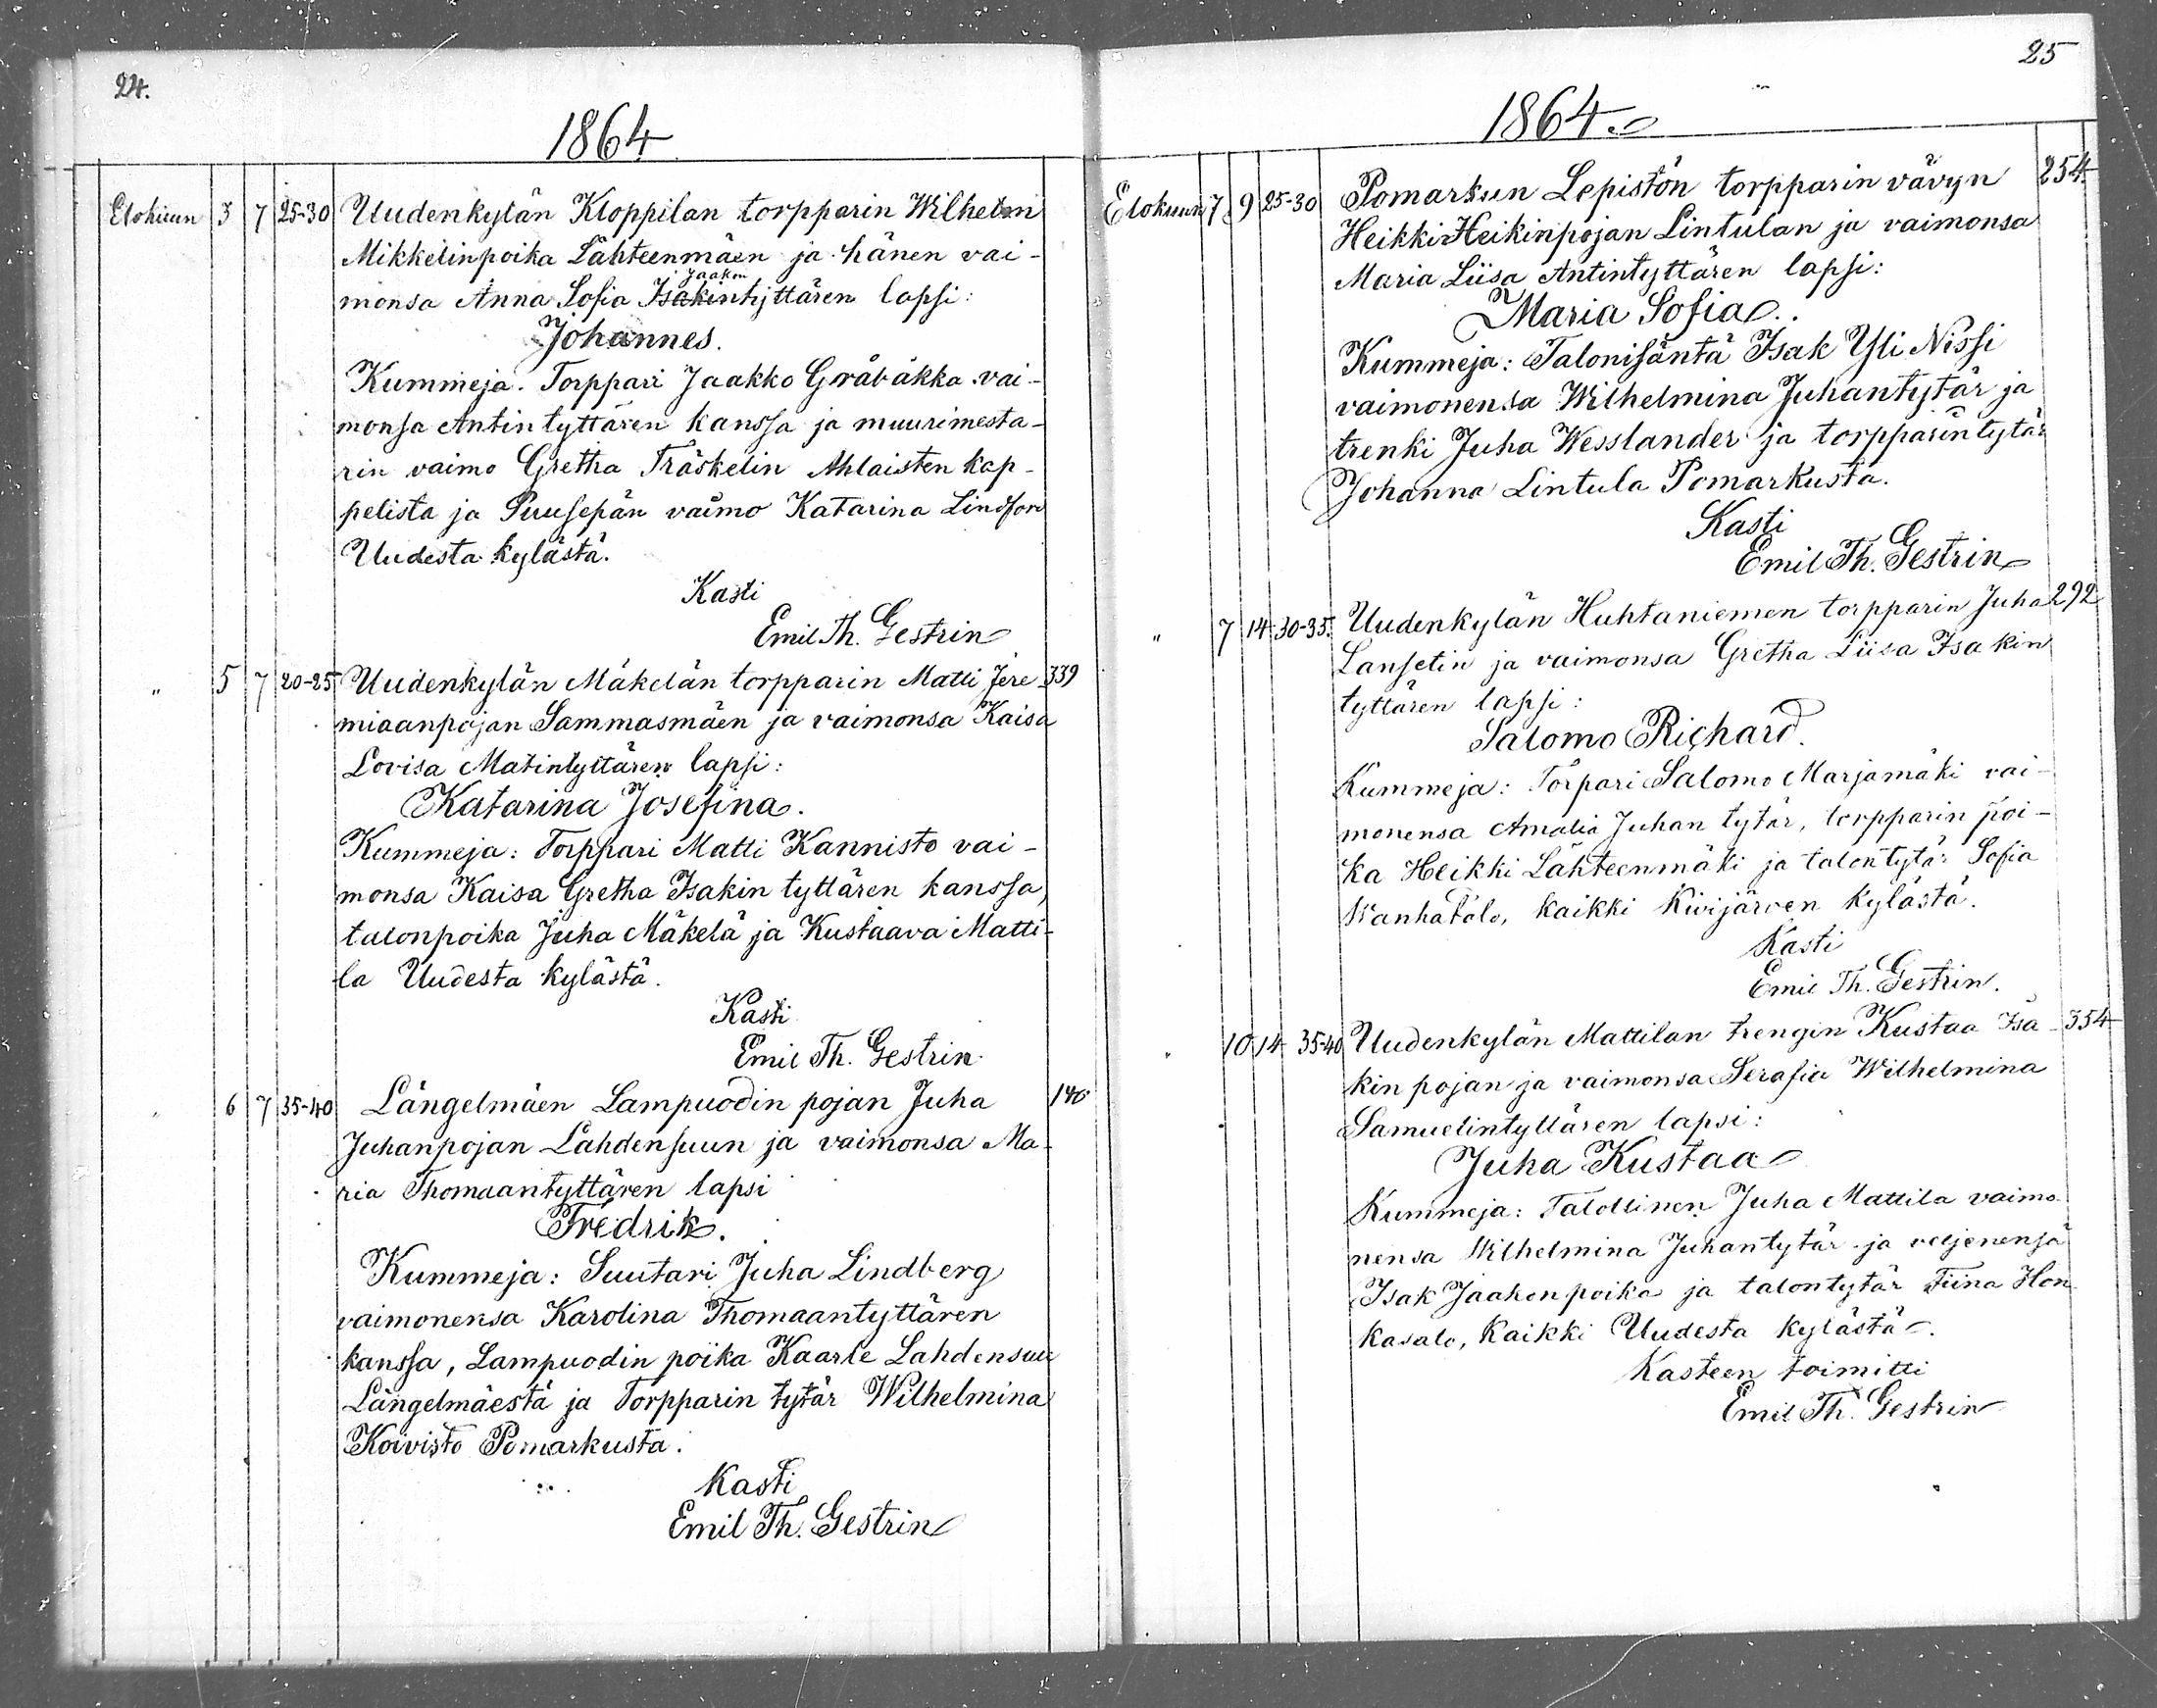 24.
1864
Elokuun 3 7 25-30 Uudenkylän Kloppilan torpparin Wilhelm
Mikkelinpoika Lähteenmäen ja hänen vai-
Jaakon
monsa Anna Sofia Isakintyttären lapsi:
Johannes.
Kummeja. Torppari Jaakko Gråbäkka vai-
monsa Antintyttären kanssa ja muurimesta-
rin vaimo Gretha Träskelin Ahlaisten kap-
pelista ja Puusepän vaimo Katarina Lindfors
Uudesta kylästä.
Kasti
Emil Th. Gestrin
" 5 7 20-25 Uudenkylän Mäkelän torpparin Matti Jere- 339
miaanpojan Sammasmäen ja vaimonsa Kaisa
Lovisa Matintyttären lapsi:
Katarina Josefina.
Kummeja: Torppari Matti Kannisto vai-
monsa Kaisa Gretha Isakin tyttären kanssa,
talonpoika Juha Mäkelä ja Kustaava Matti-
la Uudesta kylästä.
Kasti
Emil Th. Gestrin
" 6 7 35-40 Längelmäen Lampuodin pojan Juha 140
Juhanpojan Lahdensuun ja vaimonsa Ma-
ria Thomaantyttären lapsi
Fredrik.
Kummeja: Suutari Juha Lindberg
vaimonensa Karolina Thomaantyttären
kanssa, Lampuodin poika Kaarle Lahdensuu
Längelmäestä ja Torpparin tytär Wilhelmina
Koivisto Pomarkusta.
Kasti
Emil Th. Gestrin
25
1864.
Elokuun 7 9 25-30 Pomarkun Lepistön torpparin vävyn 254
Heikki Heikinpojan Lintulan ja vaimonsa
Maria Liisa Antintyttären lapsi:
Maria Sofia.
Kummeja: Talonisäntä Isak Yli Nissi
vaimonensa Wilhelmina Juhantytär ja
trenki Juha Wesslander ja torpparintytär
Johanna Lintula Pomarkusta.
Kasti
Emil Th. Gestrin
" 7 14 30-35. Uudenkylän Huhtaniemen torpparin Juha 292
Lansetin ja vaimonsa Gretha Liisa Isakin
tyttären lapsi:
Salomo Richard.
Kummeja: Torpari Salomo Marjamäki vai-
monensa Amalia Juhan tytär, torpparin poi-
ka Heikki Lähteenmäki ja talontytär Sofia
Wanhatalo, kaikki Kivijärven kylästä.
Kasti
Emil Th. Gestrin.
" 10 14 35-40 Uudenkylän Mattilan trengin Kustaa Isa- 354
kin pojan ja vaimonsa Serafia Wilhelmina
Samuelintyttären lapsi:
Juha Kustaa
Kummeja: Talollinen Juha Mattila vaimo-
nensa Wilhelmina Juhantytär ja veljenensä
Isak Jaakonpoika ja talontytär Tiina Hon-
kasalo, kaikki Uudesta kylästä.
Kasteen toimitti
Emil Th. Gestrin